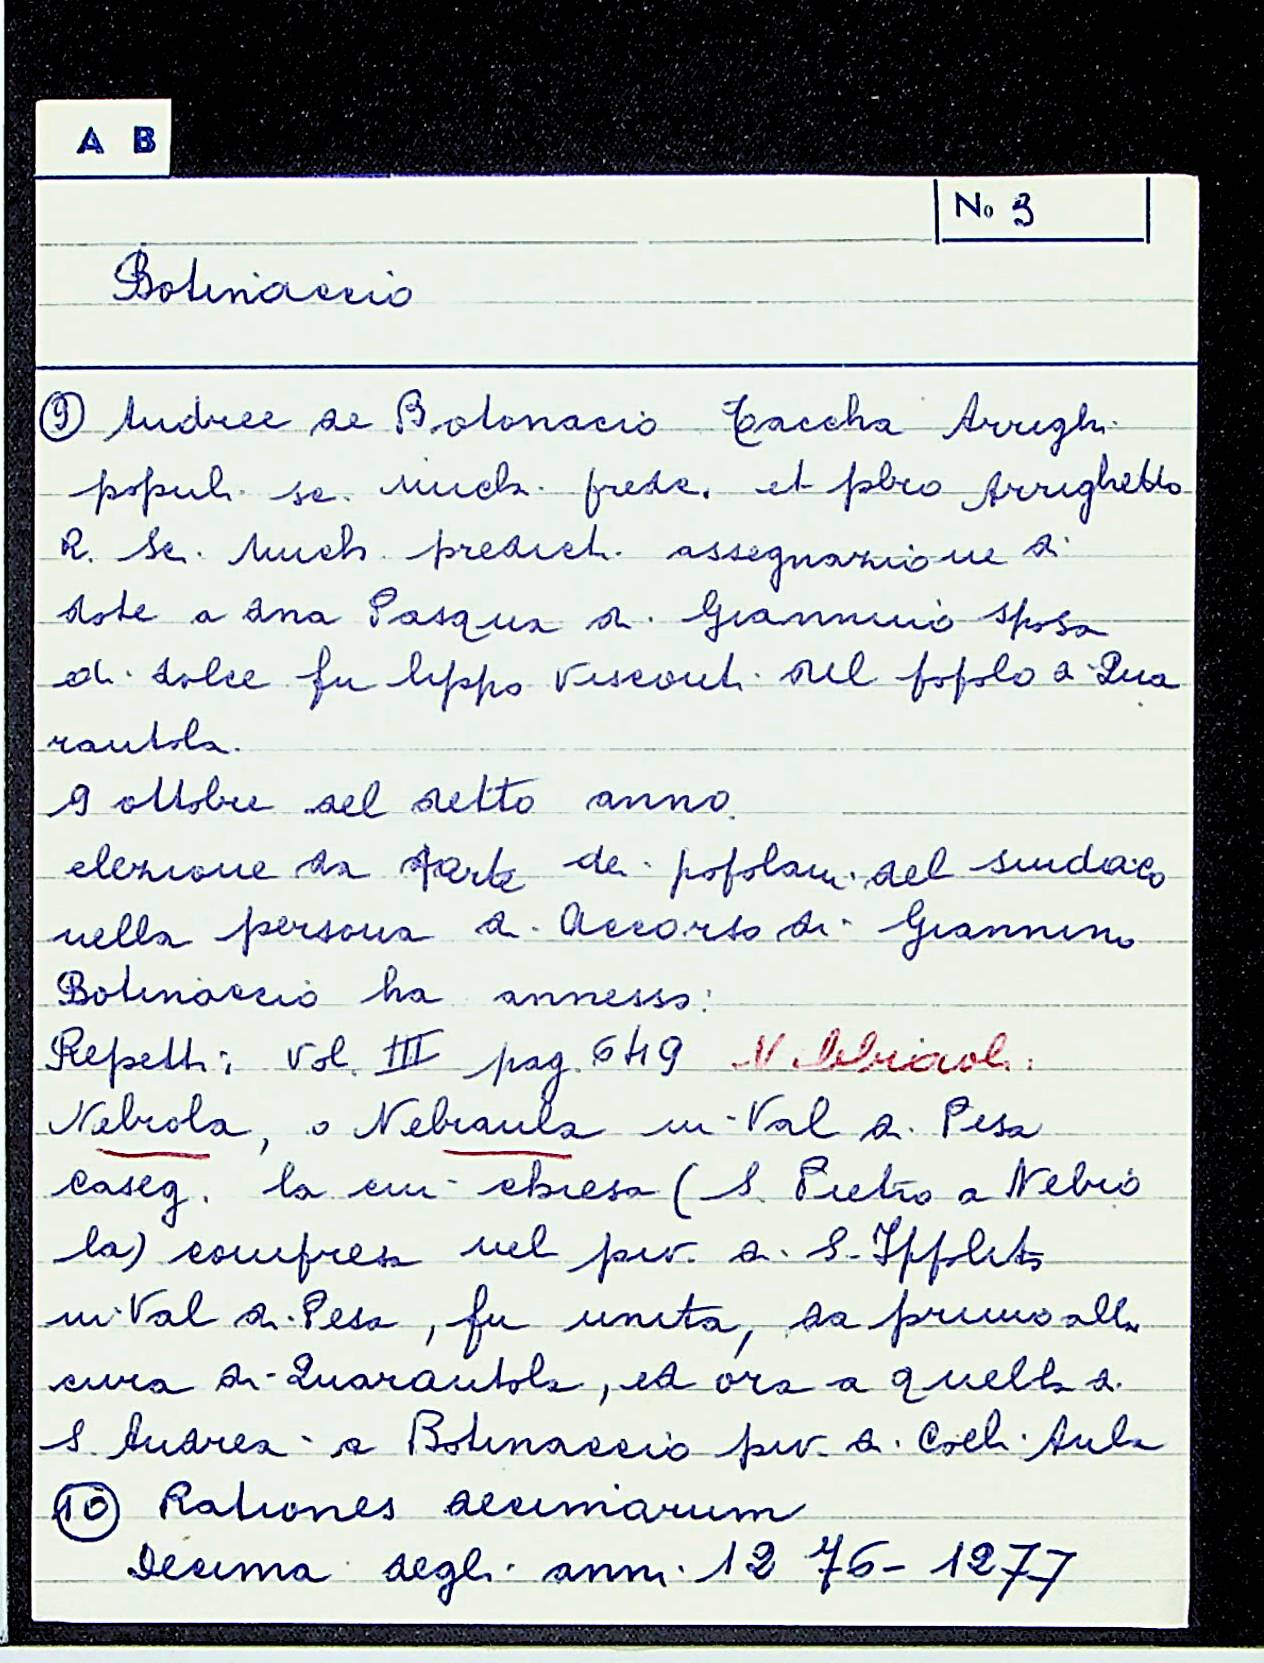 A B
No 3
Botinaccio
⑨ Andree de Botonacio Caccha Arrighi
populi sc. Mich. frede. et pbro Arrighetto
R. Sc. Mich. predicti assegnazione di
dote a dna Pasqua di Giannino sposa
di dolce fu lippo Visconti del popolo a Qua
rantola.
9 ottobre del detto anno
elezione da parte dei popolani del sindaco
nella persona di Accorso di Giannino
Botinaccio ha annesso:
Repetti: Vol. III pag. 649 Nebbiavoli:
Nebiola, o Nebiaula in Val di Pesa
caseg. la cui chiesa (S. Pietro a Nebio
la) compresa nel piv. di S. Ippolito
in Val di Pesa, fu unita, da primo alla
cura di Quarantola, ed ora a quella di
S. Andrea a Botinaccio piv. di Coeli Aula
⑩ Rationes decimarum
Decima degli anni 1276-1277